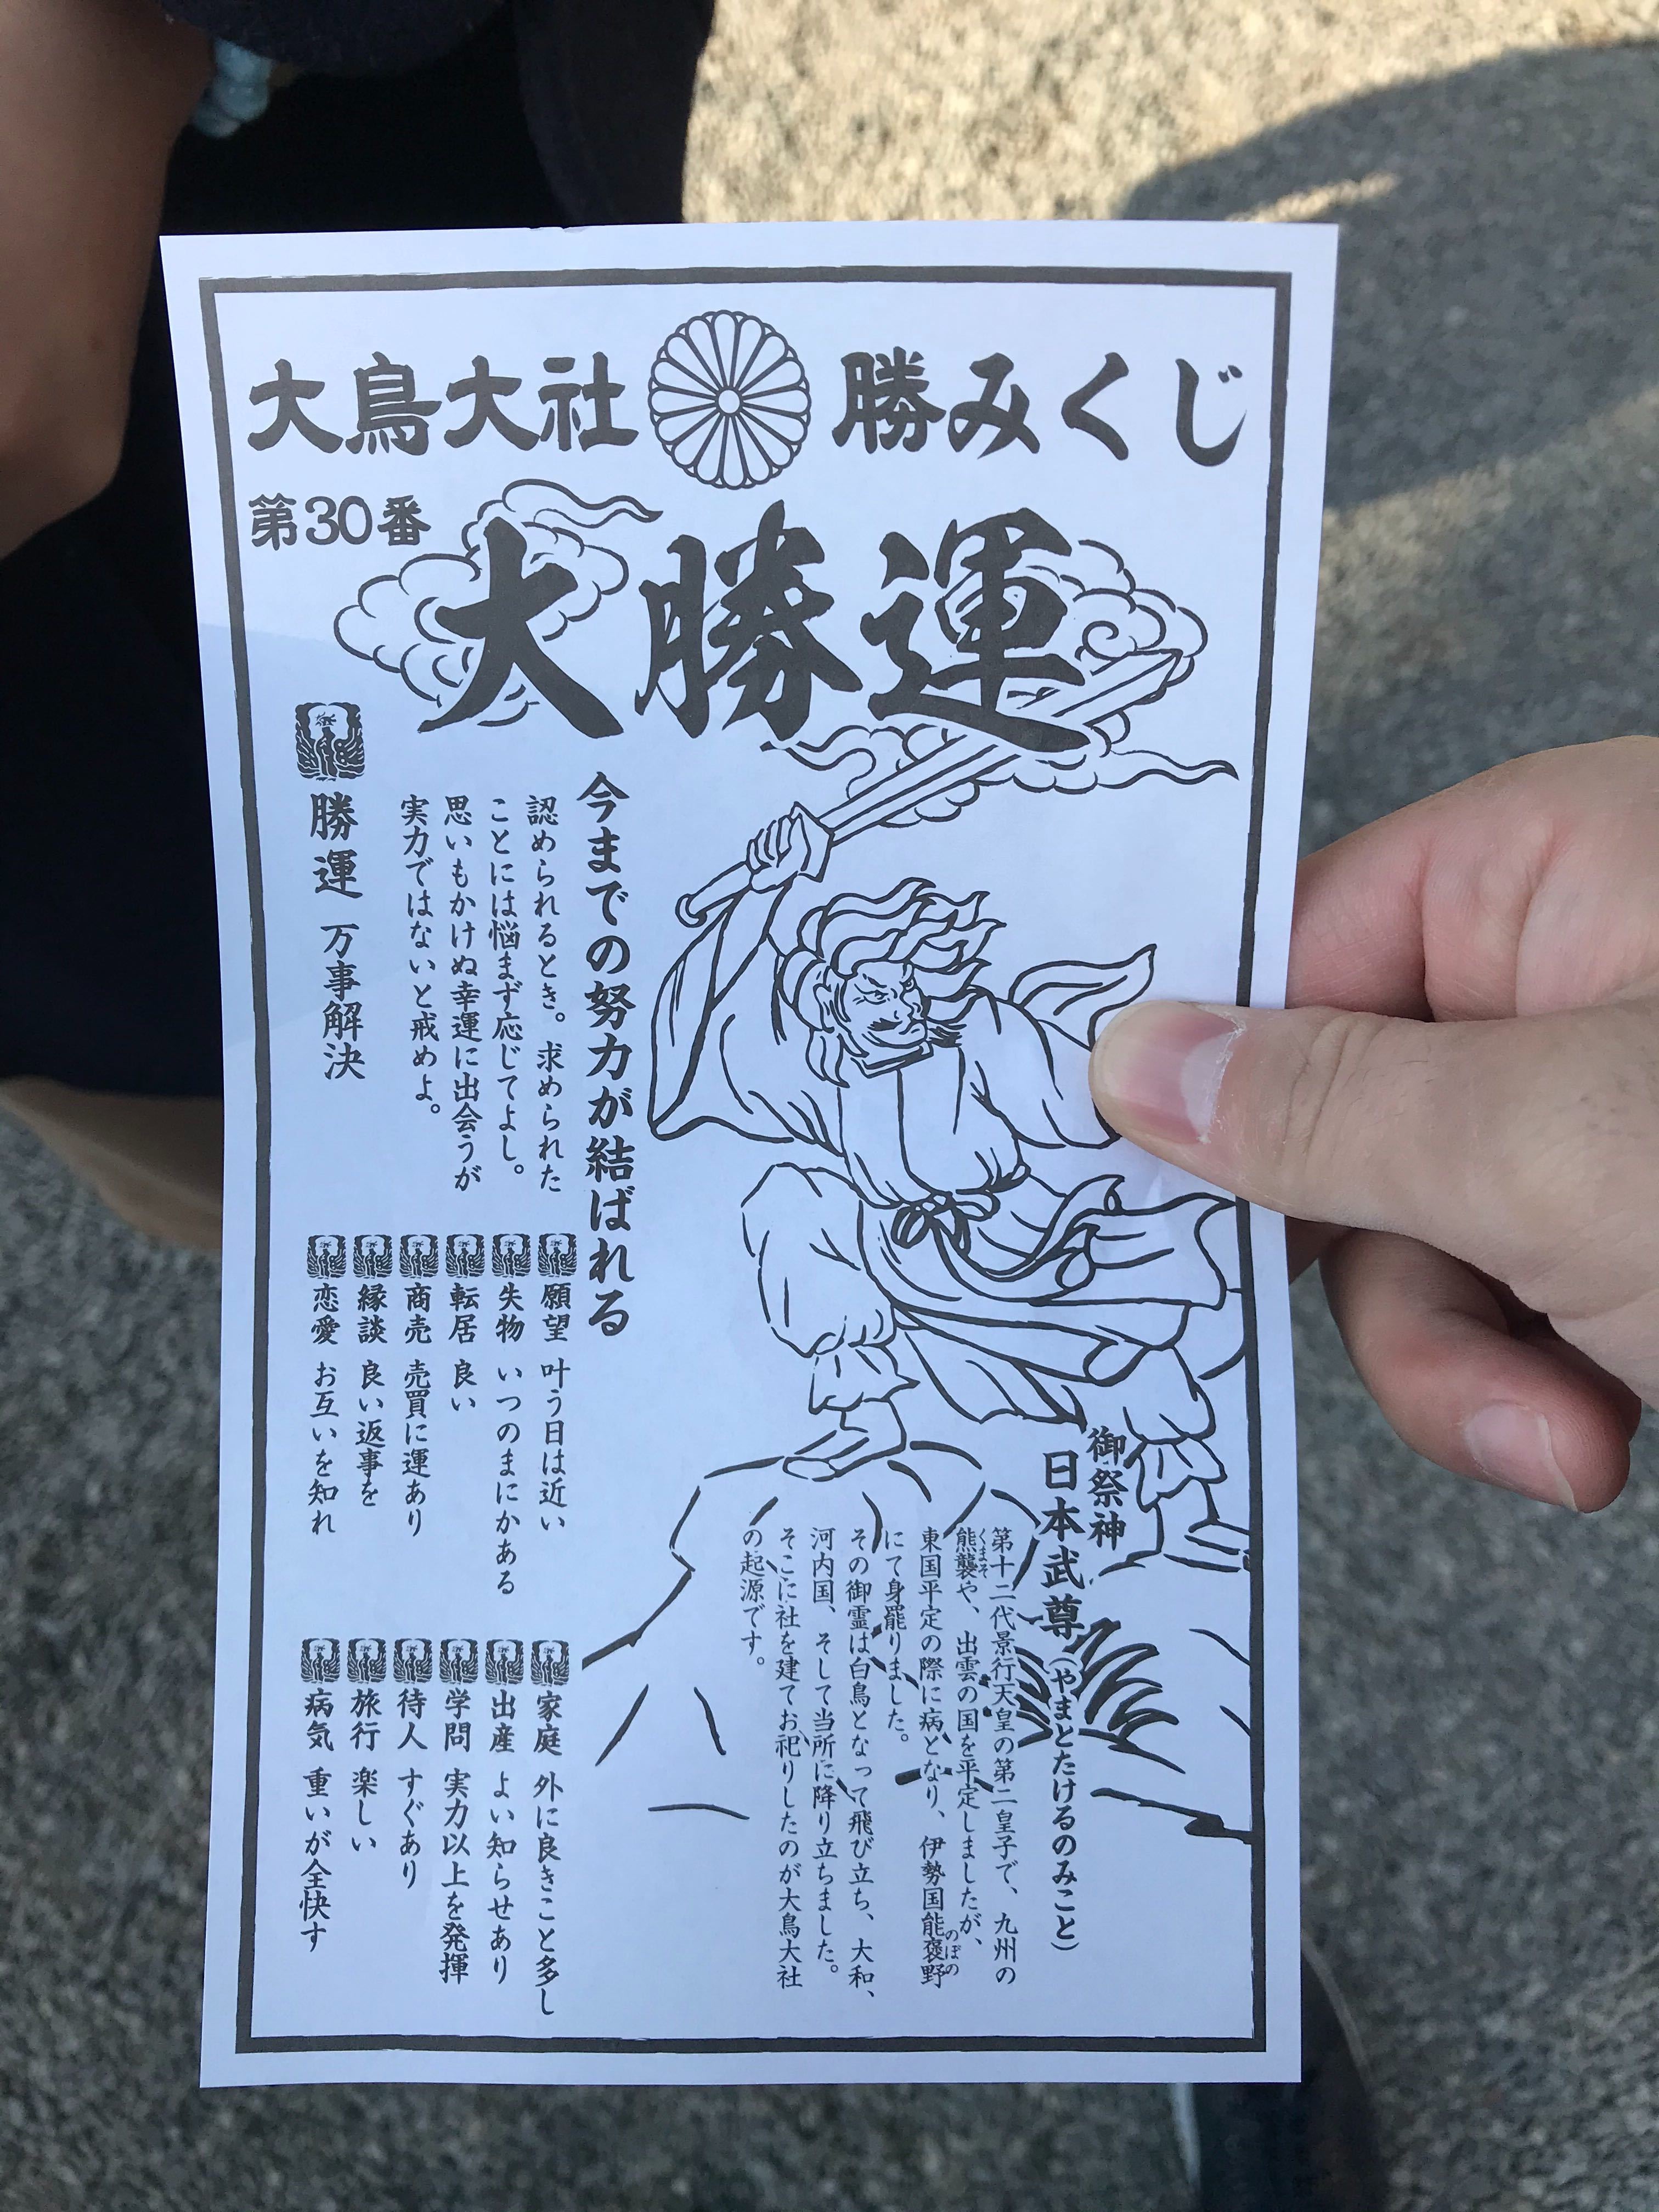 大鳥大社 勝みくじ
第30番
大勝運
御祭神
日本武尊(やまとたけるのみこと)
第十二代景行天皇の第二皇子で、九州の
熊襲や、出雲の国を平定しましたが、
くまそ
東国平定の際に病となり、伊勢国能褒野
のぼの
にて身罷りました。
その御霊は白鳥となって飛び立ち、大和、
河内国、そして当所に降り立ちました。
そこに社を建てお祀りしたのが大鳥大社
の起源です。
今までの努力が結ばれる
認められるとき。求められた
ことには悩まず応じてよし。
思いもかけぬ幸運に出会うが
実力ではないと戒めよ。
勝運 万事解決
願望 叶う日は近い
失物 いつのまにかある
転居 良い
商売 売買に運あり
縁談 良い返事を
恋愛 お互いを知れ
家庭 外に良きこと多し
出産 よい知らせあり
学問 実力以上を発揮
待人 すぐあり
旅行 楽しい
病気 重いが全快す